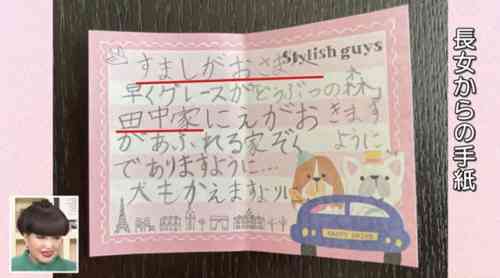 長女からの手紙
Stylish guys
すましがおさまへ
早くグレースが「どうぶつの森」
きます
ように
田中家にえがお
があふれる家ぞく
でありますように…
犬もかえますように